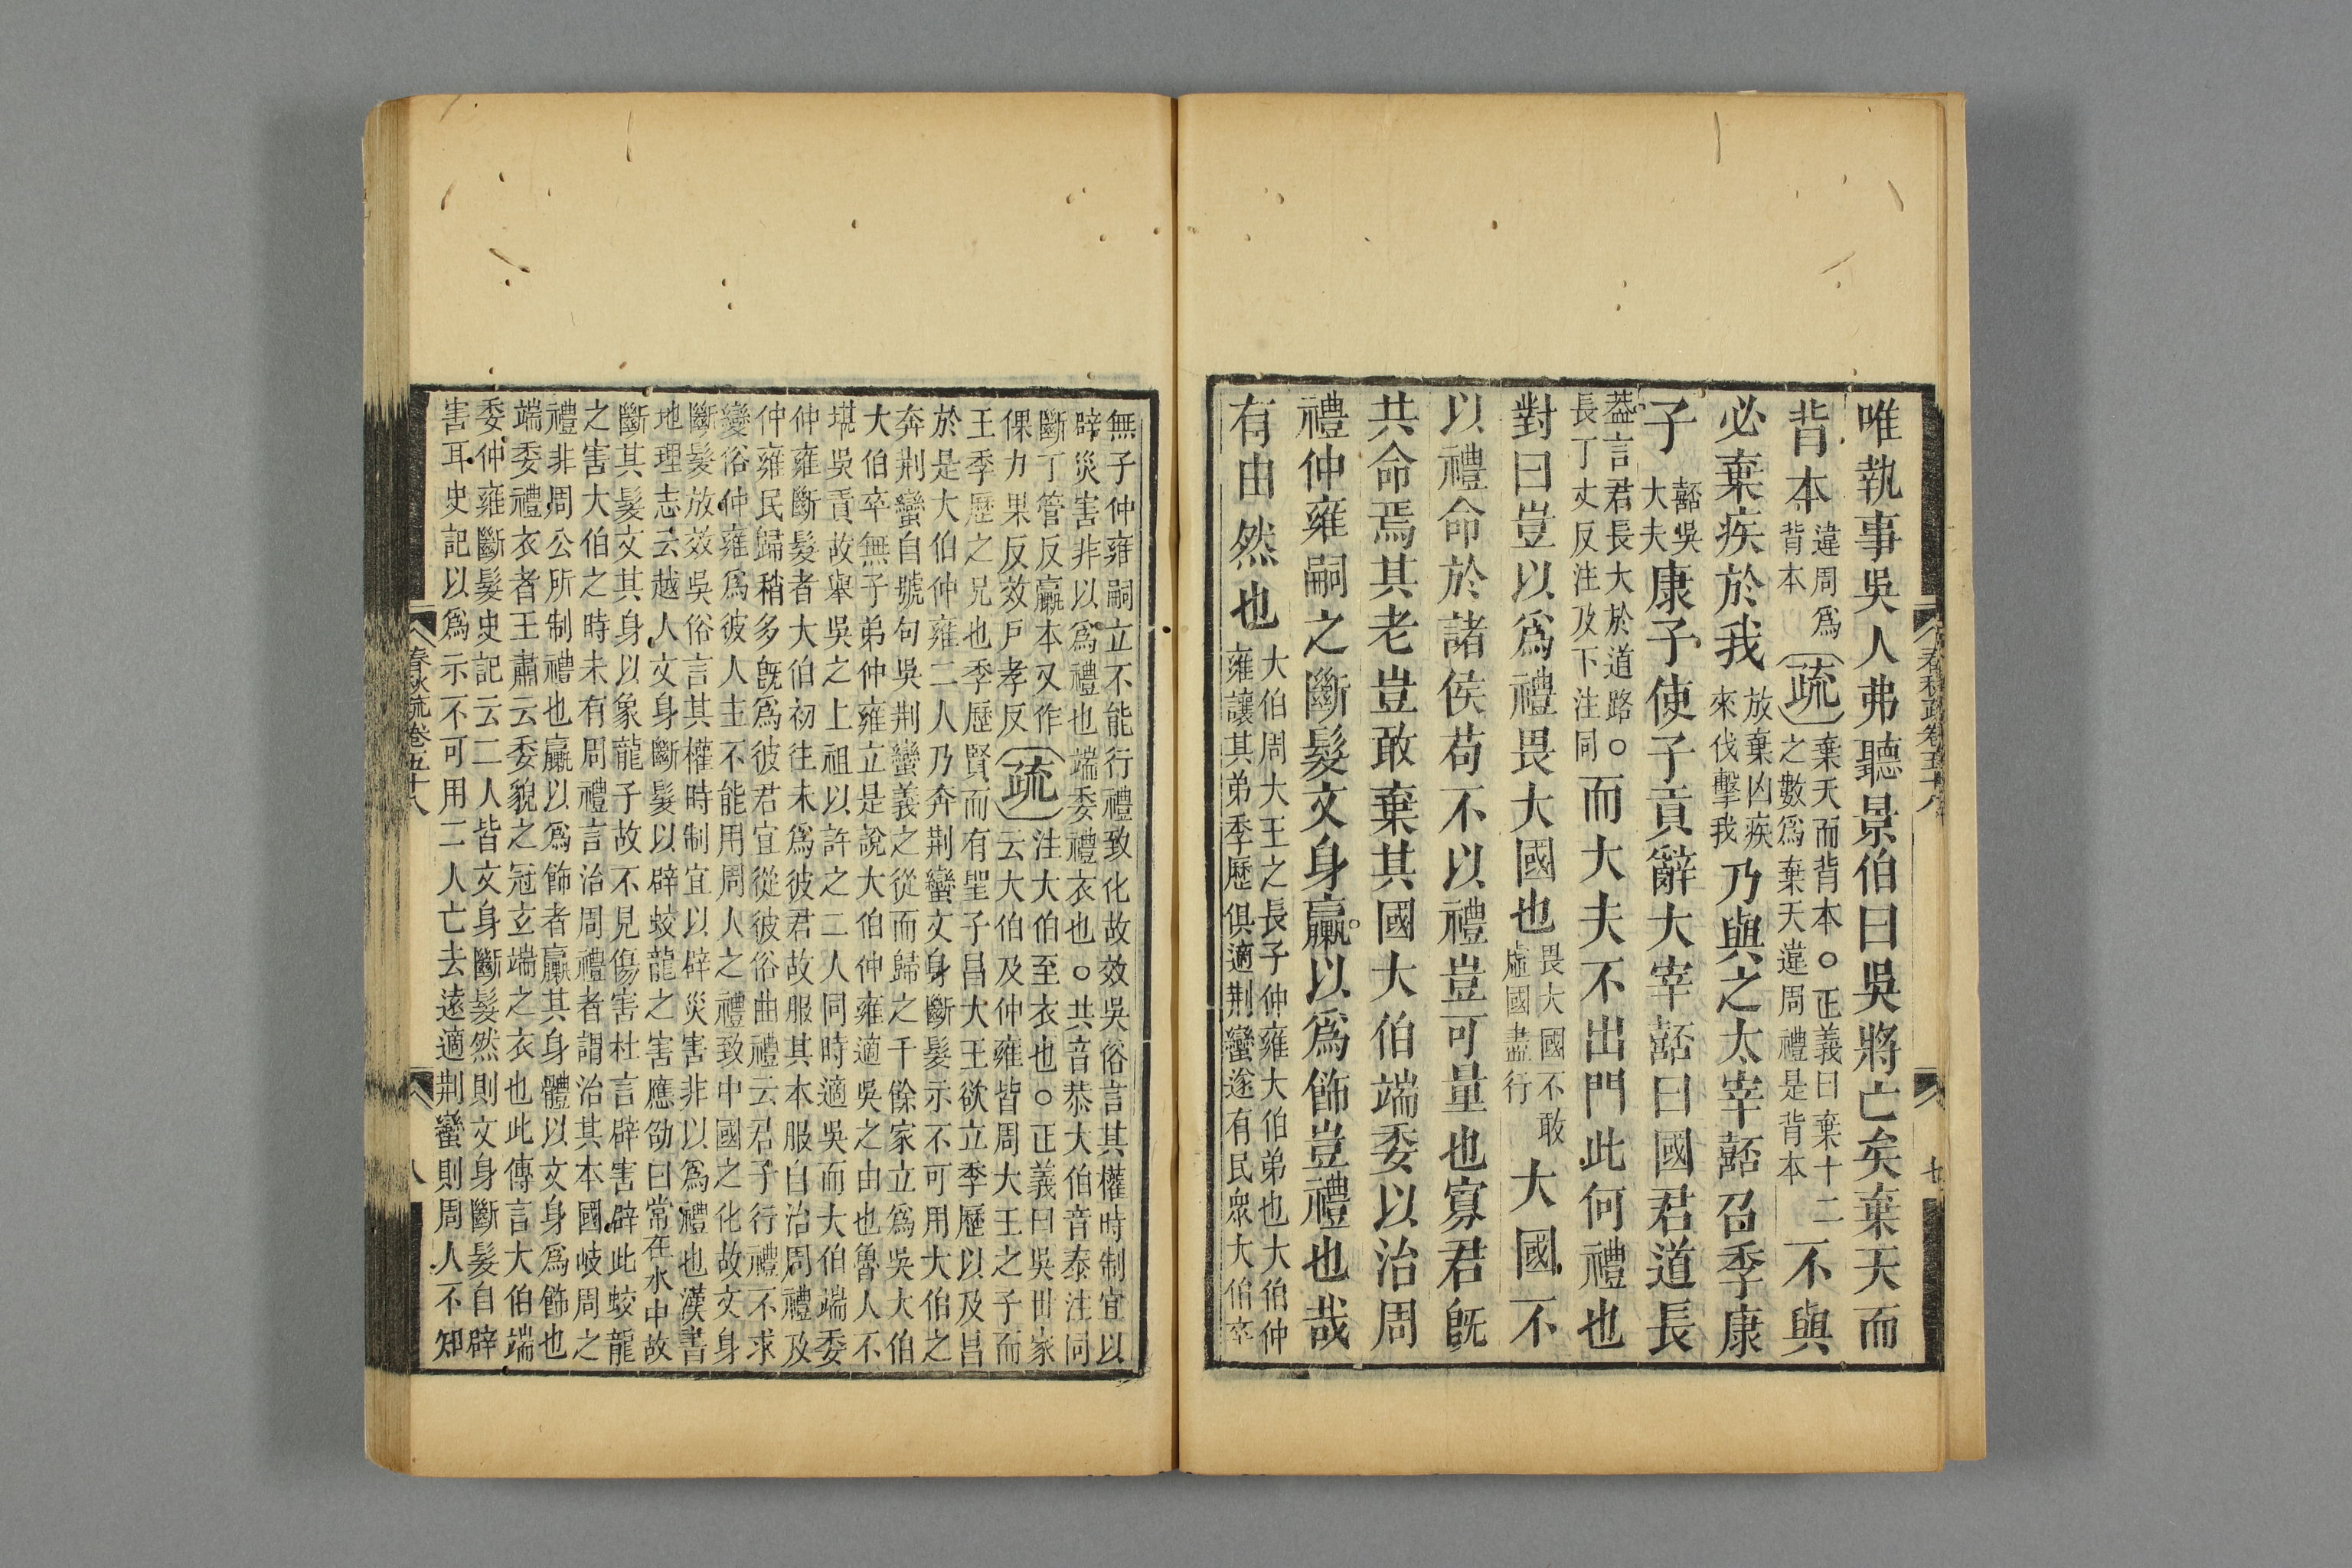 唯執事吳人弗聽景伯曰吳將亡矣棄天而
背本違周爲背本疏棄天而背本○正義曰棄十二之數爲棄天違周禮是背本不與
必棄疾於我放棄凶疾來伐擊我乃與之大宰嚭召季康
子嚭吳大夫康子使子貢辭大宰嚭曰國君道長
蓋言君長大於道路○長丁丈反注及下注同而大夫不出門此何禮也
對曰豈以爲禮畏大國也畏大國不敢虛國盡行大國不
以禮命於諸侯苟不以禮豈可量也寡君既
共命焉其老豈敢棄其國大伯端委以治周
禮仲雍嗣之斷髮文身臝以爲飾豈禮也哉
有由然也大伯周大王之長子仲雍大伯弟也大伯仲雍讓其弟季歷俱適荆蠻遂有民衆大伯卒
無子仲雍嗣立不能行禮致化故效吳俗言其權時制宜以
辟災害非以爲禮也端委禮衣也○共音恭大伯音泰注同
斷丁管反臝本又作倮力果反效戶孝反疏注大伯至衣也○正義曰吳世家云大伯及仲雍皆周大王之子而
王季歷之兄也季歷賢而有聖子昌大王欲立季歷以及昌
於是大伯仲雍二人乃奔荆蠻文身斷髮示不可用大伯之
奔荆蠻自號句吳荆蠻義之從而歸之千餘家立爲吳大伯
大伯卒無子弟仲雍立是說大伯仲雍適吳之由也魯人不
堪吳責故舉吳之上祖以許之二人同時適吳而大伯端委
仲雍斷髮者大伯初往未爲彼君故服其本服自治周禮及
仲雍民歸稍多既爲彼君宜從彼俗曲禮云君子行禮不求
變俗仲雍爲彼人主不能用周人之禮致中國之化故文身
斷髮放效吳俗言其權時制宜以辟災害非以爲禮也漢書
地理志云越人文身斷髮以辟蛟龍之害應劭曰常在水中故
斷其髮文其身以象龍子故不見傷害杜言辟害辟此蛟龍
之害大伯之時未有周禮言治周禮者謂治其本國岐周之
禮非周公所制禮也臝以爲飾者臝其身體以文身爲飾也
端委禮衣者王肅云委貌之冠玄端之衣也此傳言大伯端
委仲雍斷髮史記云二人皆文身斷髮然則文身斷髮自辟
害耳史記以爲示不可用二人亡去遠適荆蠻則周人不知
春秋疏卷五十八
八